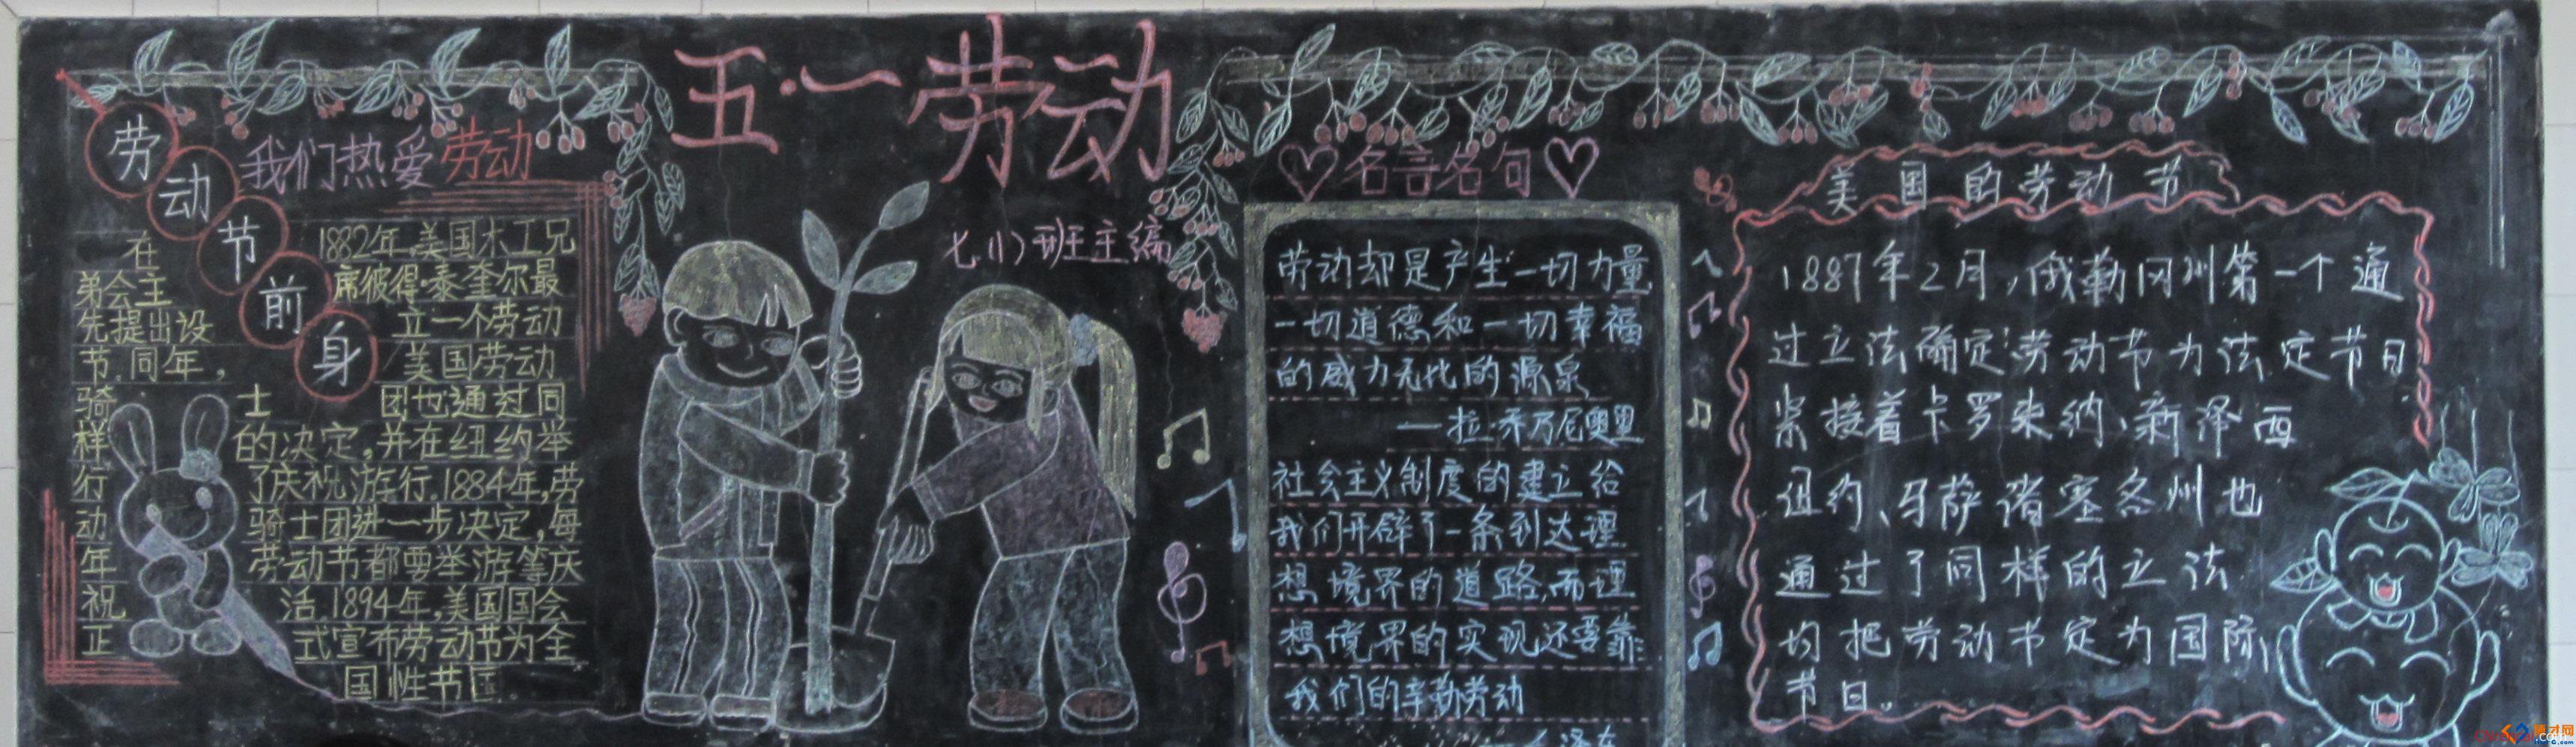 五·一劳动
七、(1)班主编
劳动节前身
我们热爱劳动
在1882年,美国木工兄
弟会主席彼得·泰奎尔最
先提出设立一个劳动
节.同年,美国劳动
骑士团也通过同
样的决定,并在纽约举
行了庆祝游行.1884年,劳
动骑士团进一步决定,每
年劳动节都要举游等庆
祝活.1894年,美国国会
正式宣布劳动节为全
国性节日
名言名句
劳动却是产生一切力量
一切道德和一切幸福
的威力无比的源泉
——拉·乔万尼奥里
社会主义制度的建立给
我们开辟了一条到达理
想境界的道路,而理
想境界的实现还要靠
我们的辛勤劳动
泽东
美国的劳动节
1887年2月,俄勒冈州第一个通
过立法确定劳动节为法定节日
紧接着卡罗来纳、新泽西
纽约、马萨诸塞各州也
通过了同样的立法
均把劳动节定为国际
节日。